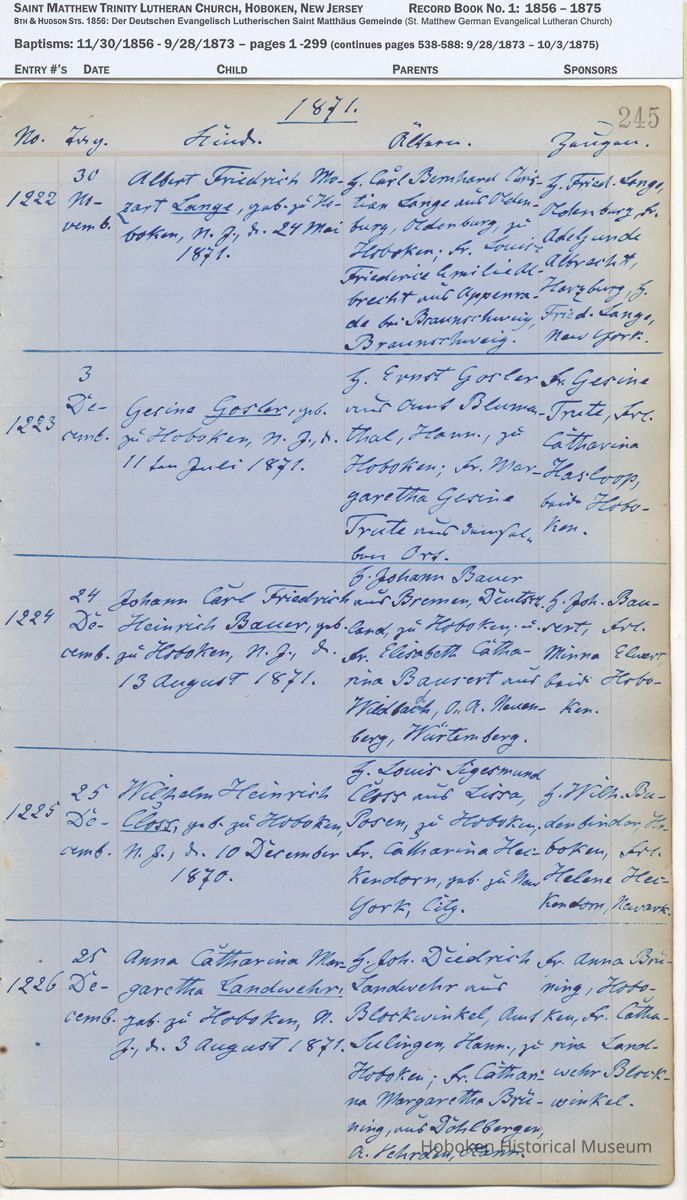 SAINT MATTHEW TRINITY LUTHERAN CHURCH, HOBOKEN, NEW JERSEY RECORD BOOK NO. 1: 1856 – 1875
8TH & HUDSON STS. 1856: Der Deutschen Evangelisch Lutherischen Saint Matthäus Gemeinde (St. Matthew German Evangelical Lutheran Church)
Baptisms: 11/30/1856 - 9/28/1873 – pages 1 -299 (continues pages 538-588: 9/28/1873 – 10/3/1875)
ENTRY #'S DATE CHILD PARENTS SPONSORS
1871.
245
No. Tag. Kind. Ältern. Zeugen.
1222
30
No-
vemb.
Albert Friedrich Mo-
zart Lange, geb. zu Ho-
boken, N. J., d. 24 Mai
1871.
H. Carl Bernhard Chris-
tian Lange aus Olden-
burg, Oldenburg, zu
Hoboken; Fr. Louise
Friederie Emilie Al-
brecht aus
de bei Braunschweig,
Braunschweig.
H. Fried. Lange,
Oldenburg, Fr.
Adelgunde
Albrecht,
Harzburg, H.
Fried. Lange,
New York.
1223
3
De-
cemb.
Gesine Gosler, geb.
zu Hoboken, N. J., d.
11ten Juli 1871.
H. Ernst Gosler
aus Amt Blumen-
thal, Hann., zu
Hoboken; Fr. Mar-
garetha Gesine
Trute aus demsel-
ben Ort.
Fr. Gesine
Trute, Frl.
Catharina
Hasloop,
beide Hobo-
ken.
1224
24
De-
cemb.
Johann Carl Friedrich
Heinrich Bauer, geb.
zu Hoboken, N. J., d.
13 August 1871.
H. Johann Bauer
aus Bremen, Deutsch-
land, zu Hoboken, u.
Fr. Elisabeth Catha-
rina Bausert aus
Wildbad, O. A. Neuen-
berg, Würtemberg.
H. Joh. Bau-
sert, Frl.
Minna
beide Hobo-
ken.
1225
25
De-
cemb.
Wilhelm Heinrich
Closs, geb. zu Hoboken,
N. J., d. 10 December
1870.
H. Louis Segesmund
Closs aus Lissa,
Posen, zu Hoboken,
Fr. Catharina Hei-
kendorn, geb. zu New
York, City.
H. Wilh. Bu-
denbinder, Ho-
boken, Frl.
Helene Hei-
kendorn, Newark.
1226
25
De-
cemb.
Anna Catharina Mar-
garetha Landwehr,
geb. zu Hoboken, N.
J., d. 3 August 1871.
H. Joh. Diedrich
Landwehr aus
Blockwinkel, Amt
Sulingen, Hann., zu
Hoboken; Fr. Cathari-
na Margaretha Brü-
ning, aus Döhlbergen,
A. Hann.
Fr. Anna Brü-
ning, Hobo-
ken, Fr. Catha-
rina Land-
wehr Block-
winkel.
Hoboken Historical Museum